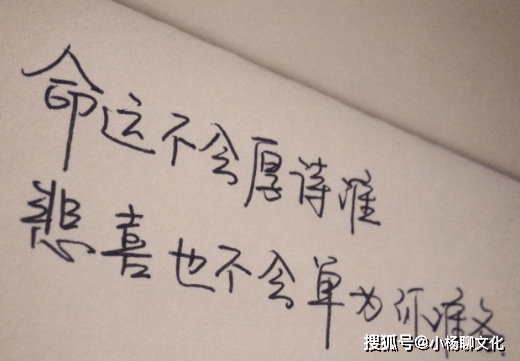 命运不会厚待谁
悲喜也不会单为你准备
搜狐号@小杨聊文化